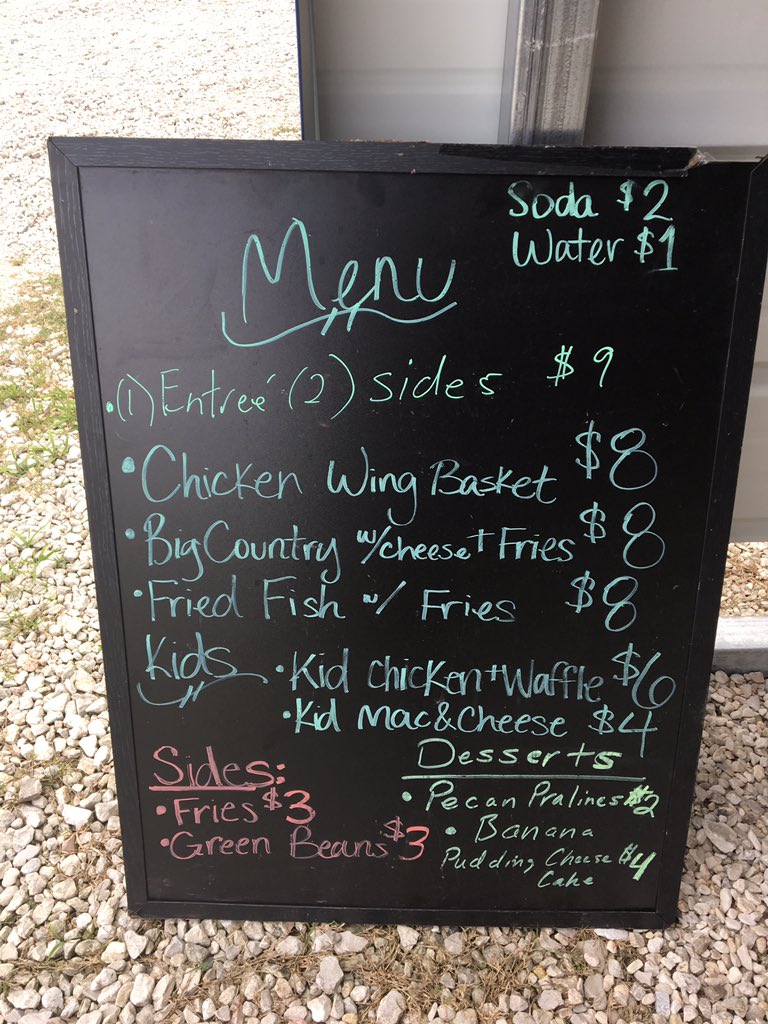 Soda $2
Water $1
Menu
•(1) Entreé (2) sides $9
•Chicken Wing Basket $8
•Big Country w/cheese + Fries $8
•Fried Fish w/ Fries $8
Kids
•Kid chicken + Waffle $6
•Kid Mac & Cheese $4
Sides:
•Fries $3
•Green Beans $3
Desserts
•Pecan Pralines $2
•Banana
Pudding Cheese $4
Cake